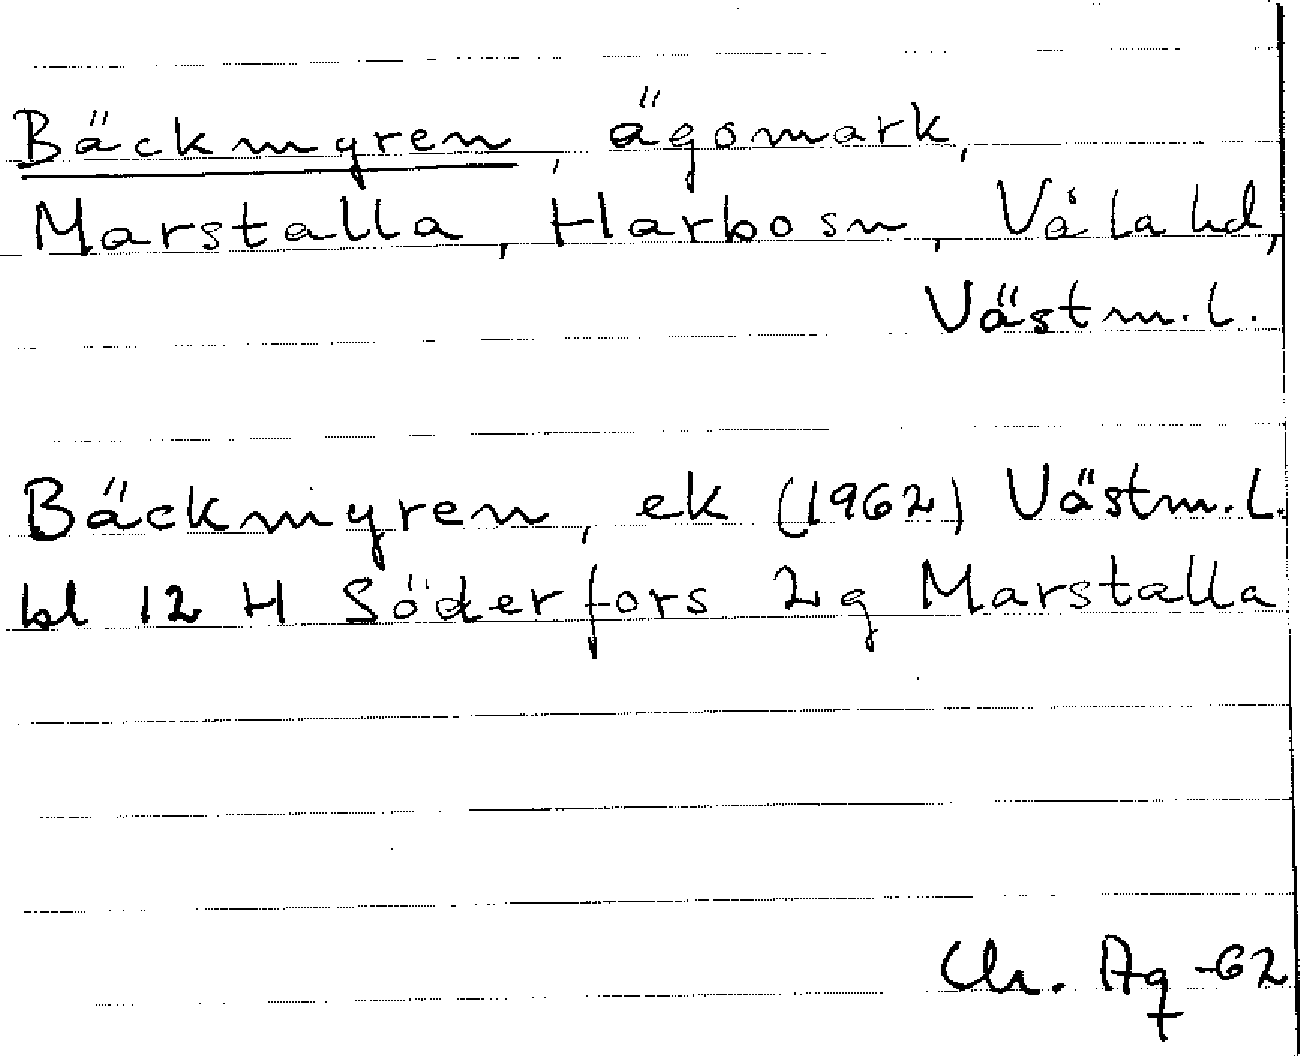 Bäckmyren, ägomark,
Marstalla, Harbo sn, Våla hd,
Västm. l.
Bäckmyren, ek (1962) Västm. l.
bl 12 H Söderfors 2g Marstalla
Chr. Aq -62